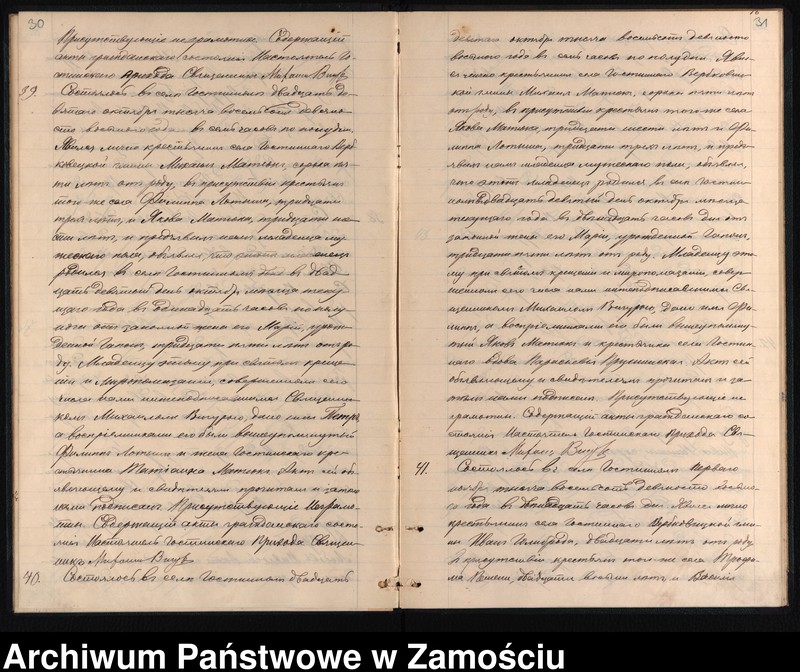 30
Присутствующіе неграмотны. Содержащій
акты гражданскаго состоянія Настоятель Го-
стинскаго Прихода Священникъ
39.
Состоялось въ селѣ Гостинномъ двадцать де-
вятаго октября тысяча восемьсотъ девяно-
сто восьмого года въ семь часовъ по полудни.
Явился лично крестьянинъ села Гостиннаго Верб-
ковецкой гмины Михаилъ Матюкъ, сорока пя-
ти лѣтъ отъ роду, въ присутствіи крестьянъ
того же села Филиппа тридцати
трехъ лѣтъ, и Якова Матюка, тридцати ше-
сти лѣтъ, и предъявилъ намъ младенца му-
жескаго пола, объявляя, что этотъ младенецъ
родился въ селѣ Гостинномъ въ двад-
цать девятый день октября мѣсяца теку-
щаго года въ часовъ по полу-
отъ законной жены его Маріи, урож-
денной тридцати пяти лѣтъ отъ ро-
ду. Младенцу этому при святомъ креще-
ніи и мѵропомазаніи, совершенномъ сего
числа нами нижеподписавшимся Священни-
комъ Михаиломъ дано имя Петръ,
а воспріемниками его были вышеупомянутый
Филиппъ и жена Гостинскаго кре-
стьянина Матюка. Актъ сей объ-
являющему и свидѣтелямъ прочитанъ и затѣмъ
нами подписанъ. Присутствующіе неграмот-
ны. Содержащій акты гражданскаго состо-
янія Настоятель Гостинскаго Прихода Священ-
никъ
40.
Состоялось въ селѣ Гостинномъ двадцать
31
девятаго октября тысяча восемьсотъ девяносто
восьмого года въ семь часовъ по полудни. Явил-
ся лично крестьянинъ села Гостиннаго Вербковец-
кой гмины Михаилъ Матюкъ, сорока пяти лѣтъ
отъ роду, въ присутствіи крестьянъ того же села
Якова Матюка, тридцати шести лѣтъ и Фи-
липпа тридцати трехъ лѣтъ, и предъ-
явилъ намъ младенца мужескаго пола, объявляя,
что этотъ младенецъ родился въ селѣ Гостин-
номъ двадцать девятый день октября мѣсяца
текущаго года въ двѣнадцать часовъ дня отъ
законной жены его Маріи, урожденной
тридцати пяти лѣтъ отъ роду. Младенцу это-
му при святомъ крещеніи и мѵропомазаніи, совер-
шенномъ сего числа нами нижеподписавшимся Свя-
щенникомъ Михаиломъ дано имя Фи-
липпъ, а воспріемниками его были вышеупомяну-
тый Яковъ Матюкъ и крестьянка села Гостин-
наго вдова Актъ сей
объявляющему и свидѣтелямъ прочитанъ и за-
тѣмъ нами подписанъ. Присутствующіе не-
грамотны. Содержащій акты гражданскаго со-
стоянія Настоятель Гостинскаго Прихода Свя-
щенникъ
41.
Состоялось въ селѣ Гостинномъ перваго
ноября тысяча восемьсотъ девяносто восьмо-
го года въ двѣнадцать часовъ дня. Явился лично
крестьянинъ села Гостиннаго Вербковецкой гми-
ны Иванъ двадцати лѣтъ отъ роду,
въ присутствіи крестьянъ того-же села Трофи-
ма двадцати восьми лѣтъ, и Василія
Archiwum Państwowe w Zamościu